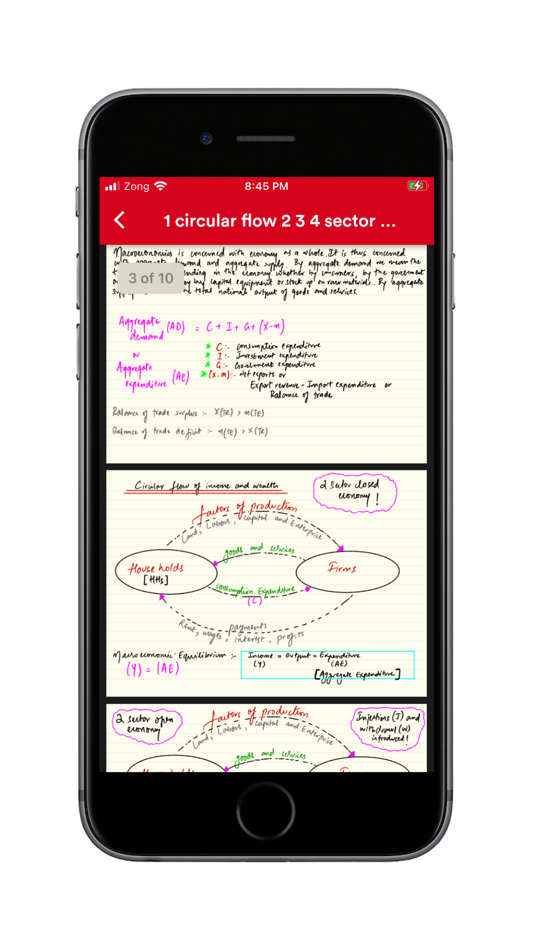 Zong
8:45 PM
1 circular flow 2 3 4 sector ...
Macroeconomics is concerned with economy as a whole. It is thus concerned
with aggregate demand and aggregate supply. By aggregate demand we mean the
3 of 10
spending in the economy whether by consumers, by the government
capital equipment or stock up on raw materials. By aggregate
total national output of goods and services.
Aggregate demand (AD) = C + I + G + (X-m)
or
Aggregate expenditure (AE)
* C :- Consumption expenditure
* I :- Investment expenditure
* G :- Government expenditure
* (X-m) :- Net exports or
Export revenue - Import expenditure or
Balance of trade
Balance of trade surplus :- X(TR) > m(TE)
Balance of trade deficit :- m(TE) > X(TR)
Circular flow of income and wealth
2 sector closed
economy !
factors of production
Land, Labour, capital and Enterprise
goods and services
House holds
[HHs]
Firms
consumption Expenditure
(C)
payments
Rent, wages, interest, profits
Macroeconomic Equilibrium :-
(Y) = (AE)
Income = Output = Expenditure
(Y) (AE)
[Aggregate Expenditure]
2 sector open
economy
factors of production
Land, Labour, capital and Enterprise
Injections (J) and
withdrawal (W)
introduced !
goods and services